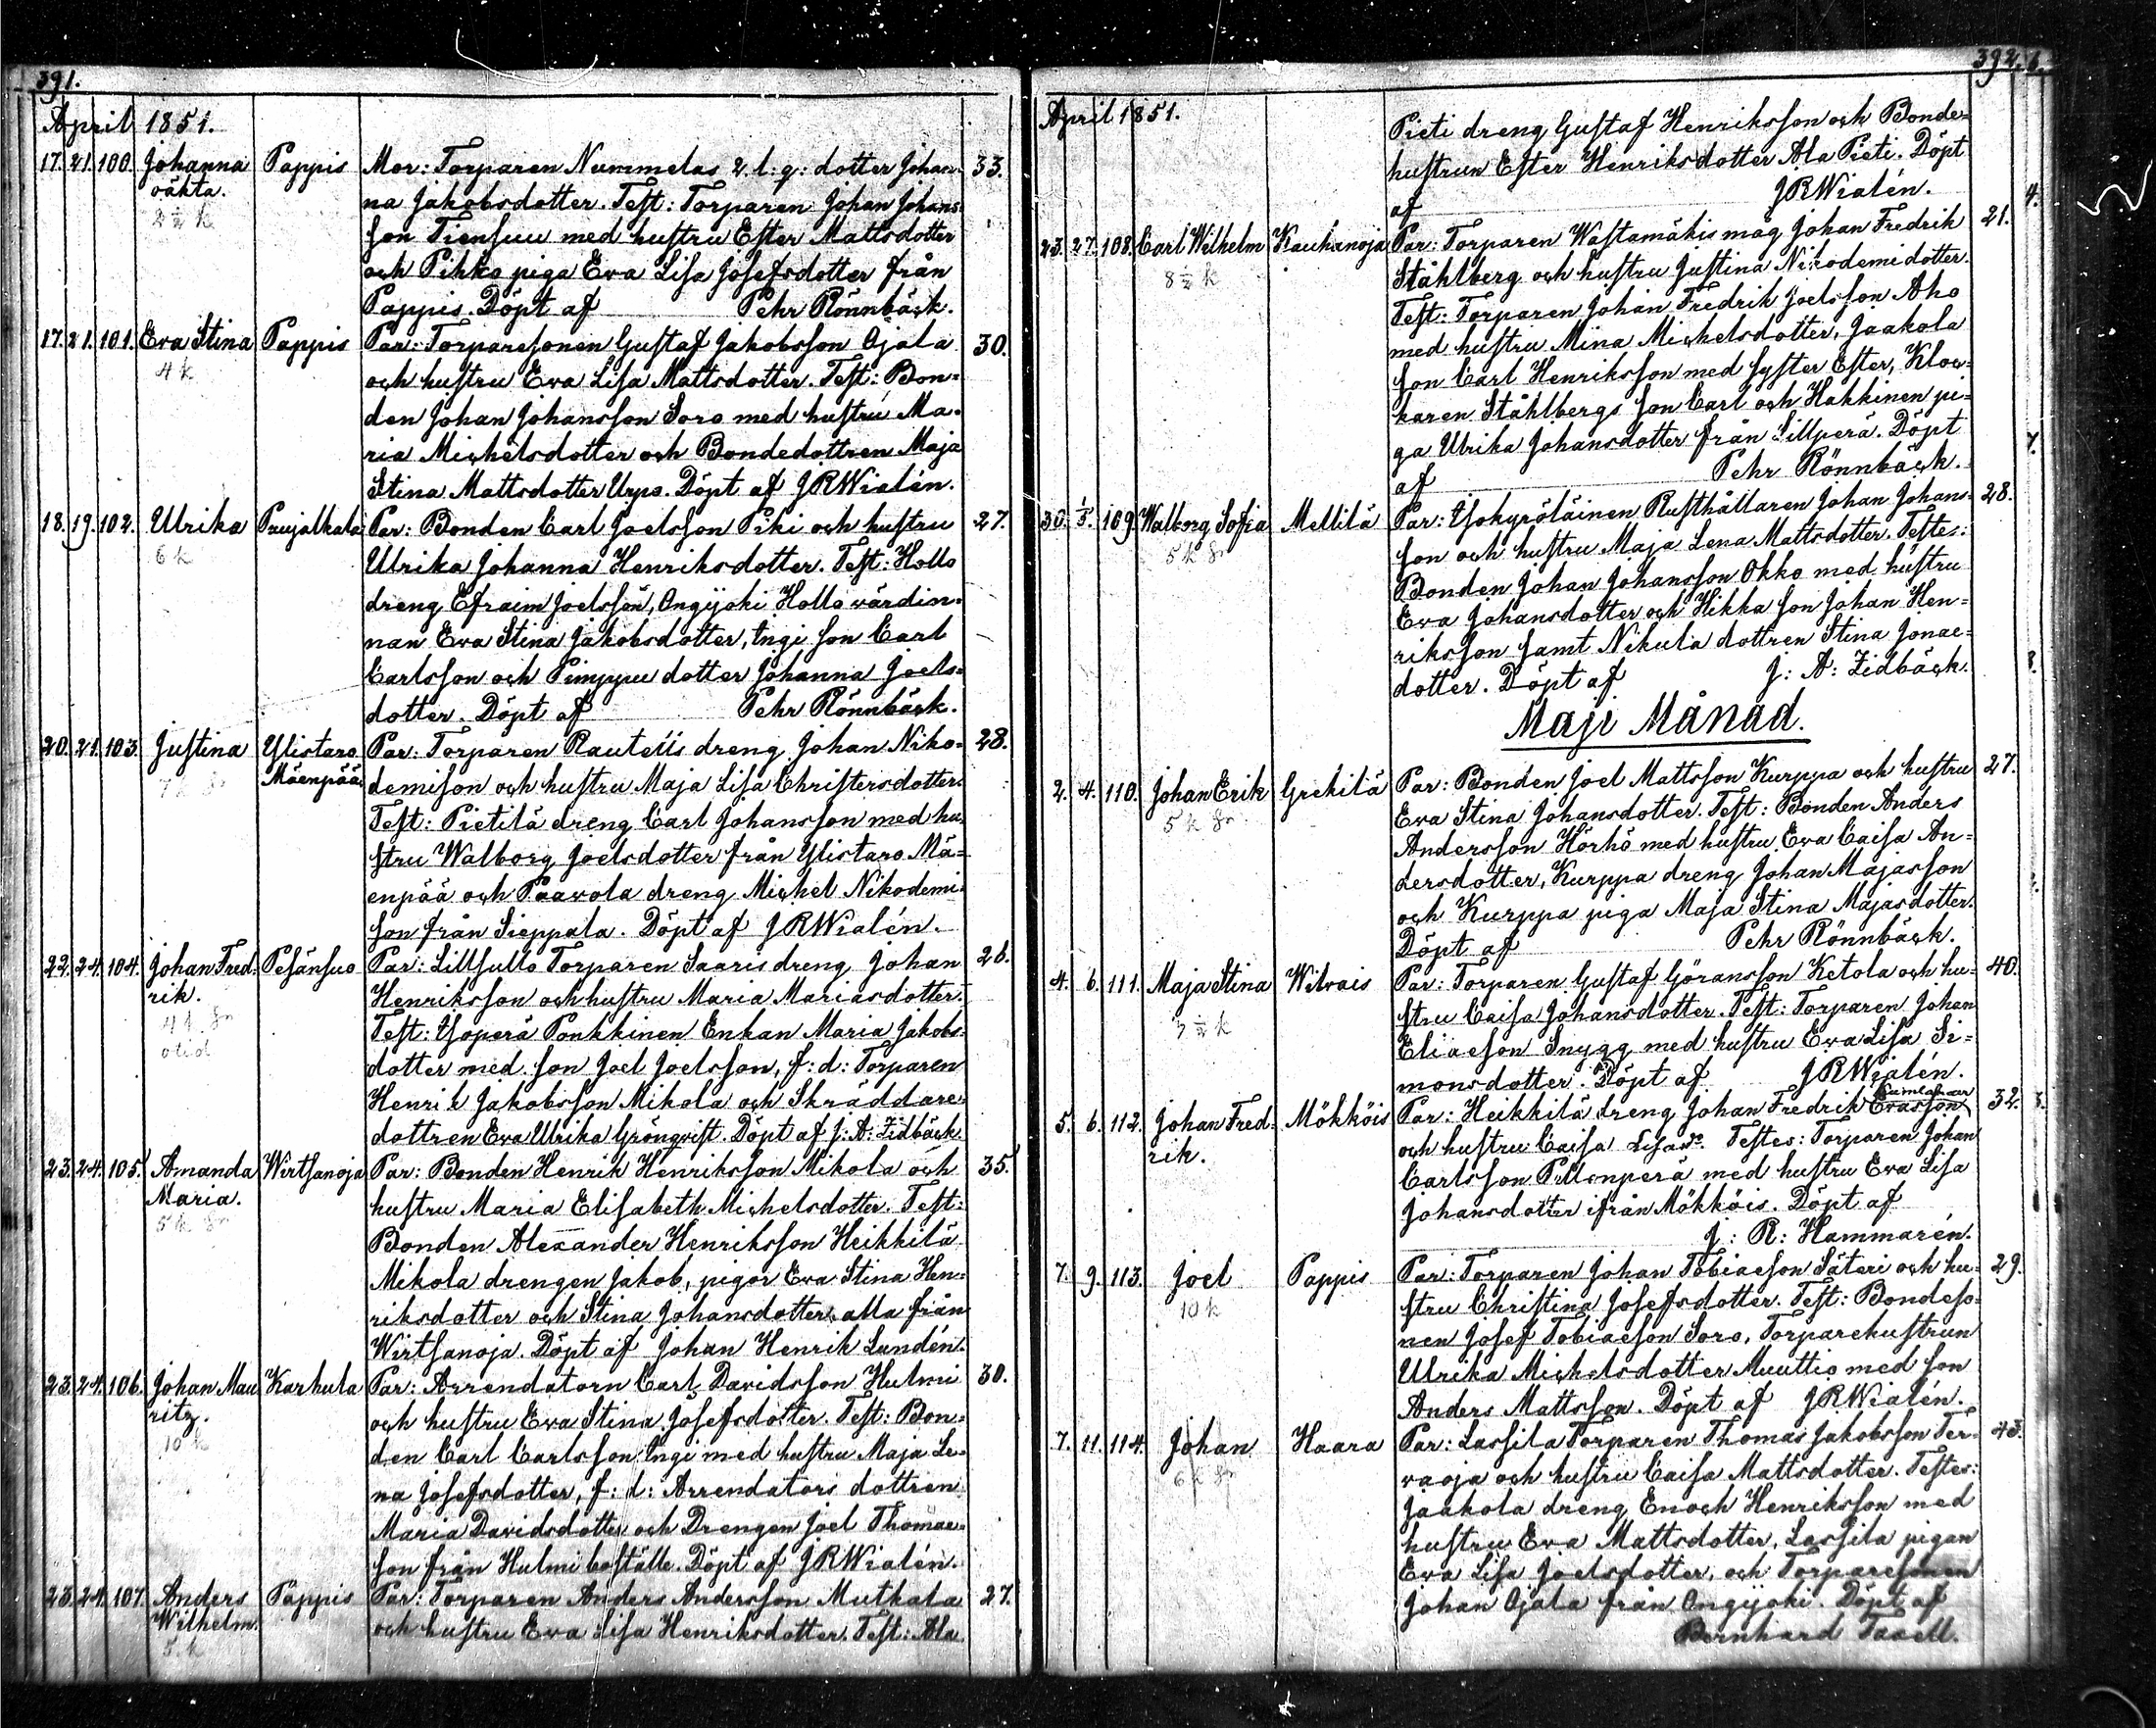 391.
April 1851.
17. 21. 100. Johanna Pappis Mor: Torparen Nummelas 2. l: q: dotter Johan- 33.
oäkta. na Jakobsdotter. Test: Torparen Johan Johans
2 ½ k son Tiensuu med hustru Ester Mattsdotter
och Pihko piga Eva Lisa Josefsdotter från
Pappis. Döpt af Pehr Rönnbäck.
17. 21. 101. Eva Stina Pappis Par: Torparesonen Gustaf Jakobsson Ojala 30.
4 k och hustru Eva Lisa Mattsdotter. Test: Bon-
den Johan Johansson Soro med hustru Ma-
ria Michelsdotter och Bondedottren Maja
Stina Mattsdotter Urpo. Döpt af JRWialén.
18. 19. 102. Ulrika Panjalkala Par: Bonden Carl Joelsson Piki och hustru 27.
6 k Ulrika Johanna Henriksdotter. Test: Hollo
dreng Efraim Joelsson, Ongijoki Hollo värdin-
nan Eva Stina Jakobsdotter, Ingi son Carl
Carlsson och Pimppu dotter Johanna Joels-
dotter. Döpt af Pehr Rönnbäck.
20. 21. 103. Justina Ylistaro Par: Torparen Rauteiis dreng Johan Niko- 28.
Mäenpää demison och hustru Maja Lisa Christersdotter.
Test: Pietilä dreng Carl Johansson med hu-
stru Walborg Joelsdotter från Ylistaro Mä-
enpää och Paavola dreng Michel Nikodemi-
son från Sieppala. Döpt af JRWialén.
22. 24. 104. Johan Fred- Pesänsuo Par: Lillsullo Torparen Saaris dreng Johan 26.
rik. Henriksson och hustru Maria Mariasdotter.
Test: Yoperä Ponkkinen Enkan Maria Jakobs-
dotter med son Joel Joelsson, f: d: Torparen
Henrik Jakobsson Mikola och Skräddare-
dottren Eva Ulrika Grönqvist. Döpt af J: A: Zidbäck.
23. 24. 105. Amanda Wirtsanoja Par: Bonden Henrik Henriksson Mikola och 35.
Maria. hustru Maria Elisabeth Michelsdotter. Test:
5 k Bonden Alexander Henriksson Heikkilä
Mikola drengen Jakob, pigor Eva Stina Hen-
riksdotter och Stina Johansdotter, alla från
Wirtsanoja. Döpt af Johan Henrik Lundén.
23. 24. 106. Johan Mau Karhula Par: Arrendatorn Carl Davidsson Hulmi 30.
ritz. och hustru Eva Stina Josefsdotter. Test: Bon-
10 k den Carl Carlsson Ingi med hustru Maja Le-
na Josefsdotter, f: d: Arrendators dottren
Maria Davidsdotter och Drengen Joel Thomae-
son från Hulmi boställe. Döpt af JRWialén.
23. 24. 107. Anders Pappis Par: Torparen Anders Andersson Mutkala 27.
Wilhelm. och hustru Eva Lisa Henriksdotter. Test: Ala
5. k
392.
April 1851.
Pieti dreng Gustaf Henriksson och Bonde-
hustrun Ester Henriksdotter Ala Pieti. Döpt
af JRWialén.
23. 27. 108. Carl Wilhelm Kauhanoja Par: Torparen Wastamäkis mag Johan Fredrik 21.
8 ½ k Ståhlberg och hustru Justina Nikodemi dotter.
Test: Torparen Johan Fredrik Joelsson Aho
med hustru Mina Michelsdotter, Jaakola
son Carl Henriksson med syster Ester, Kloc-
karen Ståhlbergs son Carl och Hakkinen pi-
ga Ulrika Johansdotter från Lillperä. Döpt
af Pehr Rönnbäck.
30. 1/5. 109. Walborg Sofia Mellilä Par: Yohyröläinen Rusthållaren Johan Johans- 28.
5 k son och hustru Maja Lena Mattsdotter. Testes:
Bonden Johan Johansson Okko med hustru
Eva Johansdotter och Hikka son Johan Hen-
riksson samt Nikula dottren Stina Jonae-
dotter. Döpt af J: A: Zidbäck.
Maji Månad.
2. 4. 110. Johan Erik Grekilä Par: Bonden Joel Mattsson Kurppa och hustru 27.
5 k Eva Stina Johansdotter. Test: Bonden Anders
Andersson Hörhö med hustru Eva Caisa An-
dersdotter, Kurppa dreng Johan Majasson
och Kurppa piga Maja Stina Majasdotter.
Döpt af Pehr Rönnbäck.
4. 6. 111. Maja Stina Wilvais Par: Torparen Gustaf Göransson Ketola och hu- 40.
3 ½ k stru Caisa Johansdotter. Test: Torparen Johan
Eliaeson Snygg med hustru Eva Lisa Si-
monsdotter. Döpt af JRWialén.
5. 6. 112. Johan Fred- Mökköis Par: Heikkilä dreng Johan Fredrik Evasson 32.
rik. och hustru Caisa Lisa. Testes: Torparen Johan
Carlsson Pellonperä med hustru Eva Lisa
Johansdotter ifrån Mökköis. Döpt af
J: R: Hammarén.
7. 9. 113. Joel Pappis Par: Torparen Johan Tobiaeson Säteri och hu- 29.
10 k stru Christina Josefsdotter. Test: Bondeso-
nen Josef Tobiaeson Soro, Torparehustrun
Ulrika Michelsdotter Muuttio med son
Anders Mattsson. Döpt af JRWialén.
7. 11. 114. Johan Haara Par: Lassila Torparen Thomas Jakobsson Ter- 43.
6 k vaoja och hustru Caisa Mattsdotter. Testes:
Jaakola dreng Enoch Henriksson med
hustru Eva Mattsdotter, Lassila pigan
Eva Lisa Joelsdotter, och Torparesonen
Johan Ojala från Ongijoki. Döpt af
Bernhard Taxell.